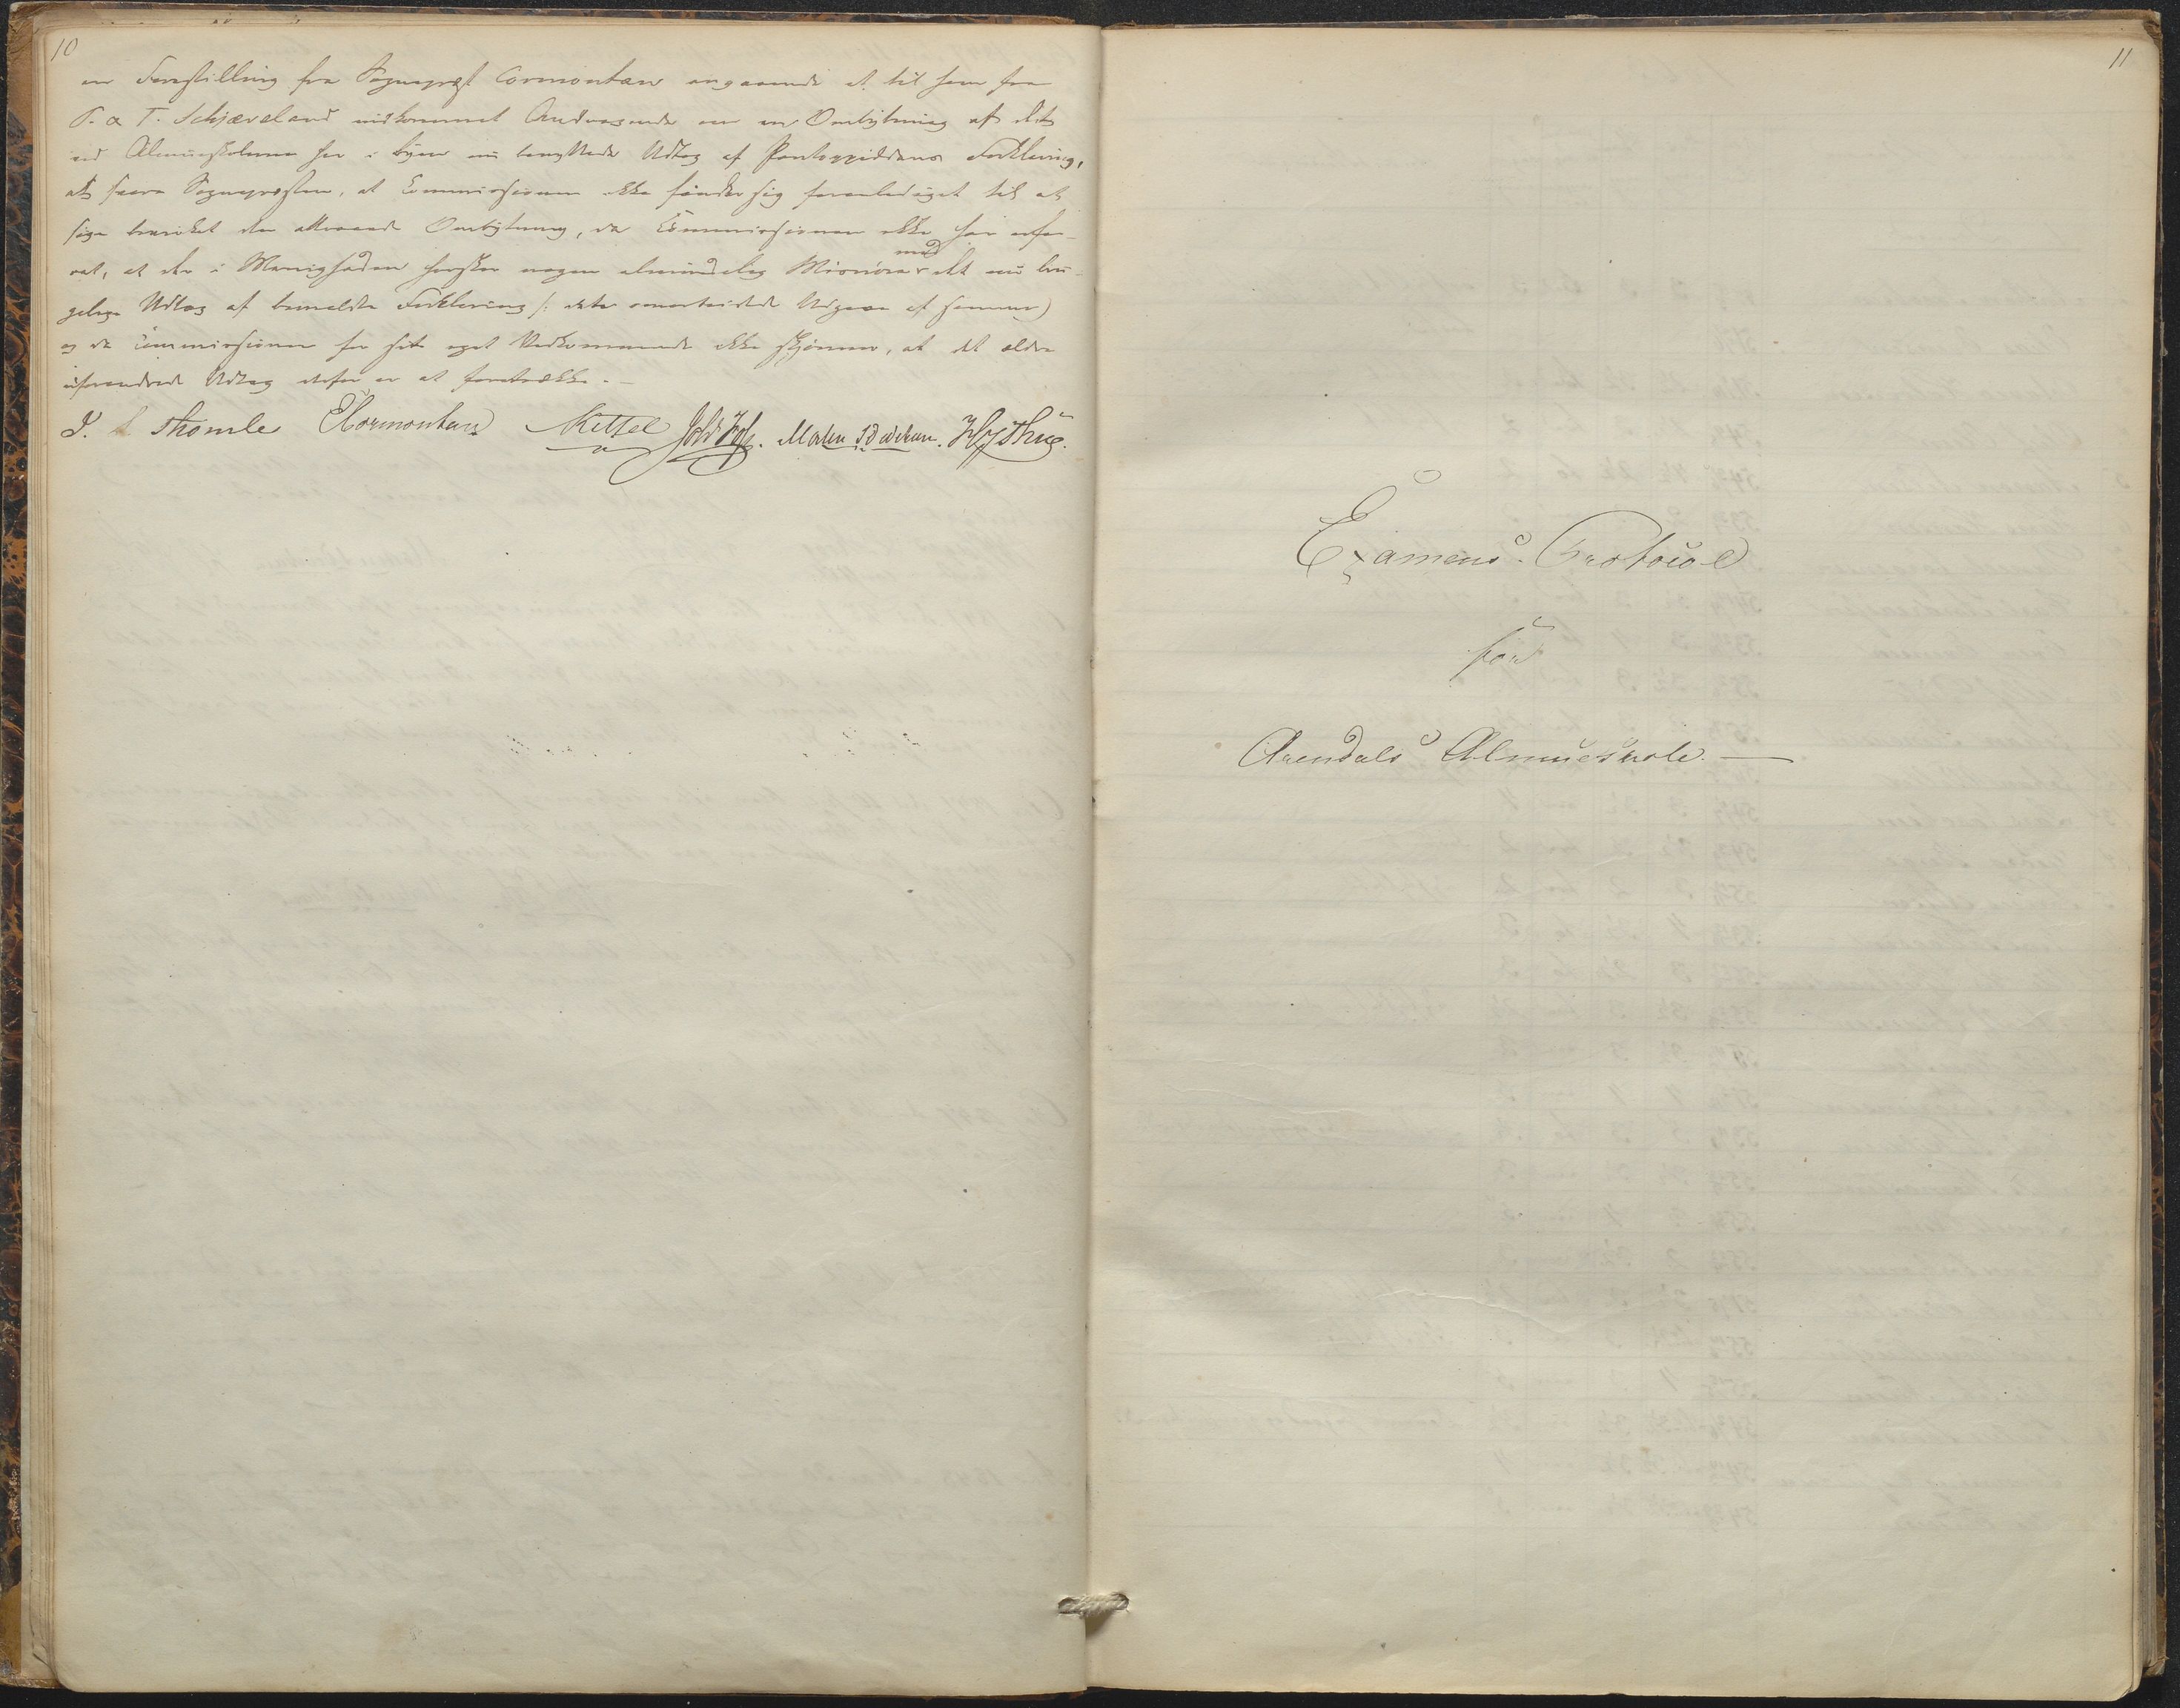 10
en Forestilling fra Sognepræst Cormontan angaaende et til ham fra
P. & T. Schjæveland indkommet Andragende om en Ombytning af det
ved Almueskolerne her i Byen nu benyttede Udtog af Pontoppidans Forklaring,
at svare Sognepræsten, at Commissionen ikke finder sig foranlediget til at
søge bevirket den attraaede Ombytning, da Commissionen ikke har erfa-
ret, at der i Menigheden hersker nogen almindelig Misnöie med det nu bru-
gelige Udtog af bemeldte Forklaring /: det omarbeidede Udgave af samme)
og da Commissionen for sit eget Vedkommende ikke skjönner, at det ældre
uforandrede Udtog derfor er at foretrække. —
J. Thomle Cormontan Kittel Morten
11
Examens-Protocol
for
Arendals Almueskole. —